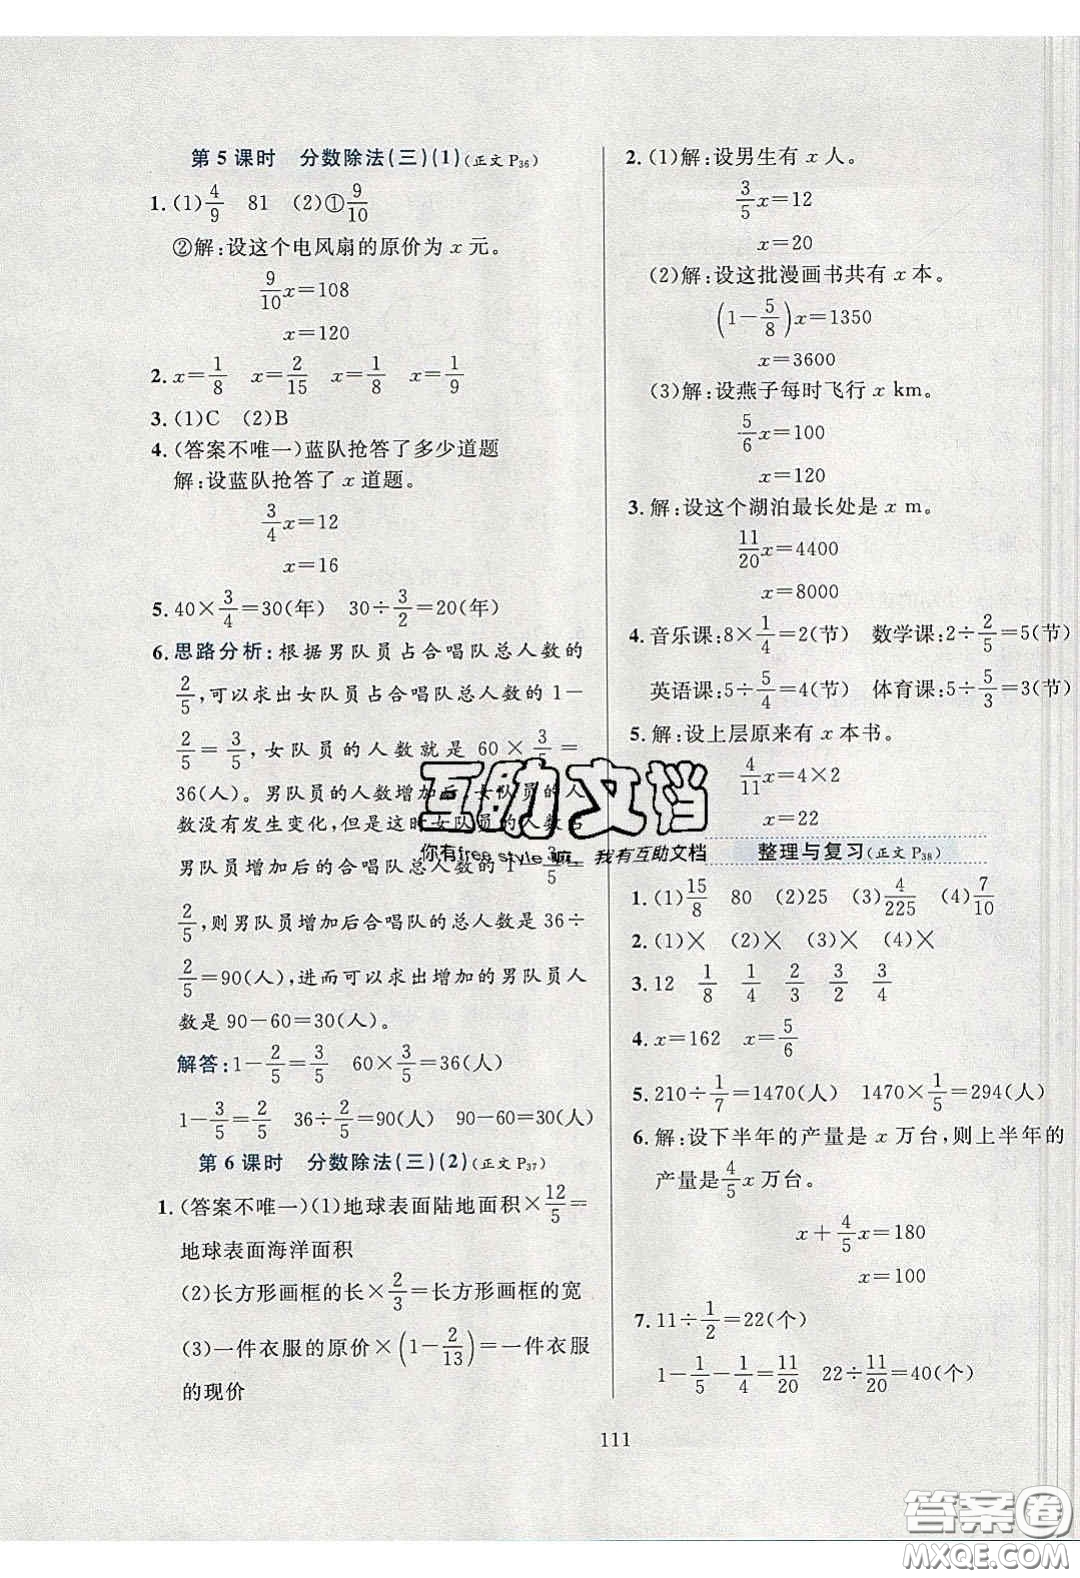 第5课时　分数除法(三)(1)(正文P36)
1.(1)4/9　81　(2)①9/10
②解:设这个电风扇的原价为 x 元。
9/10x=108
x=120
2. x=1/8　x=2/15　x=1/8　x=1/9
3.(1)C　(2)B
4.(答案不唯一)蓝队抢答了多少道题
解:设蓝队抢答了 x 道题。
3/4x=12
x=16
5. 40×3/4=30(年)　30÷3/2=20(年)
6. 思路分析:根据男队员占合唱队总人数的
2/5,可以求出女队员占合唱队总人数的 1-
2/5=3/5,女队员的人数就是 60×3/5=
36(人)。男队员的人数增加后,女队员的人
数没有发生变化,但是这时女队员的人数占
男队员增加后合唱队总人数的 1-3/5=
2/5,则男队员增加后合唱队的总人数是 36÷
2/5=90(人),进而可以求出增加的男队员人
数是 90-60=30(人)。
解答:1-2/5=3/5　60×3/5=36(人)
1-3/5=2/5　36÷2/5=90(人)　90-60=30(人)
第6课时　分数除法(三)(2)(正文P37)
1.(答案不唯一)(1)地球表面陆地面积×12/5=
地球表面海洋面积
(2)长方形画框的长×2/3=长方形画框的宽
(3)一件衣服的原价×(1-2/13)=一件衣服
的现价
2.(1)解:设男生有 x 人。
3/5x=12
x=20
(2)解:设这批漫画书共有 x 本。
(1-5/8)x=1350
x=3600
(3)解:设燕子每时飞行 x km。
5/6x=100
x=120
3. 解:设这个湖泊最长处是 x m。
11/20x=4400
x=8000
4. 音乐课:8×1/4=2(节)　数学课:2÷2/5=5(节)
英语课:5÷5/4=4(节)　体育课:5÷5/3=3(节)
5. 解:设上层原来有 x 本书。
4/11x=4×2
x=22
整理与复习(正文P38)
1.(1)15/8　80　(2)25　(3)4/225　(4)7/10
2.(1)×　(2)×　(3)×　(4)×
3. 12　1/8　1/4　2/3　3/2　3/4
4. x=162　x=5/6
5. 210÷1/7=1470(人)　1470×1/5=294(人)
6. 解:设下半年的产量是 x 万台,则上半年的
产量是4/5x 万台。
x+4/5x=180
x=100
7. 11÷1/2=22(个)
1-1/5-1/4=11/20　22÷11/20=40(个)
111
互助文档
你有free style嘛,我有互助文档
答案卷
MXQE.COM